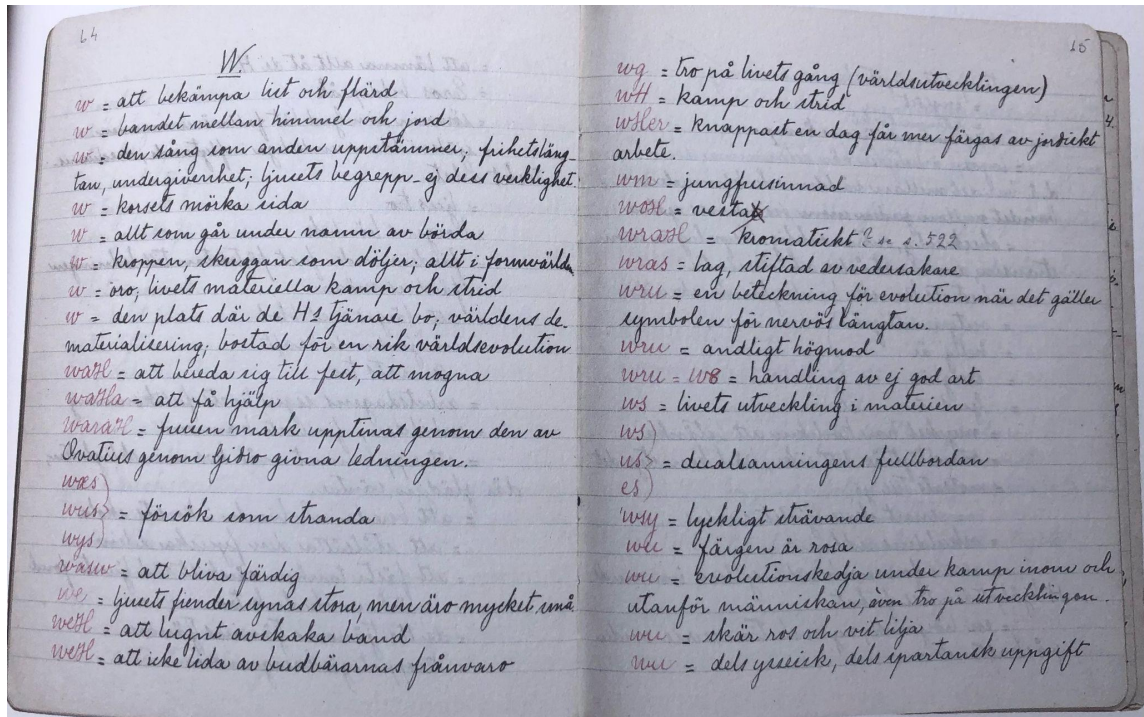 64
W.
w = att bekämpa list och flärd
w = bandet mellan himmel och jord
w = den sång som anden uppstämmer; frihetsläng-
tan, undergivenhet; ljusets begrepp - ej dess verklighet
w = korsets mörka sida
w = allt som går under namn av börda
w = kroppen, skuggan som döljer; allt i formvärlden
w = oro; livets materiella kamp och strid
w = den plats där de Hs tjänare bo; världens de-
materialisering; bostad för en rik världsevolution
waH = att bereda sig till fest, att mogna
waHa = att få hjälp
waraH = frusen mark upptinas genom den av
Ovatius genom Gidro givna ledningen.
wæs)
wus} = försök som stranda
wys)
wasw = att bliva färdig
we = ljusets fiender synas stora, men äro mycket små
weH = att lugnt avskaka band
weH = att icke lida av budbärarnas frånvaro
65
wg = tro på livets gång (världsutvecklingen)
wH = kamp och strid
wHer = knappast en dag får mer färgas av jordiskt
arbete.
wm = jungfrusinnad
woH = vestal
wraH = kromatiskt? se s. 522
wras = lag, stiftad av vedersakare
wru = en beteckning för evolution när det gäller
symbolen för nervös längtan.
wru = andligt högmod
wru - w8 = handling av ej god art
ws = livets utveckling i materien
ws)
us} = dualsanningens fullbordan
es)
wsy = lyckligt strävande
wu = färgen är rosa
wu = evolutionskedja under kamp inom och
utanför människan, även tro på utvecklingen.
wu = skär ros och vit lilja
wu = dels ysseisk, dels spartansk uppgift